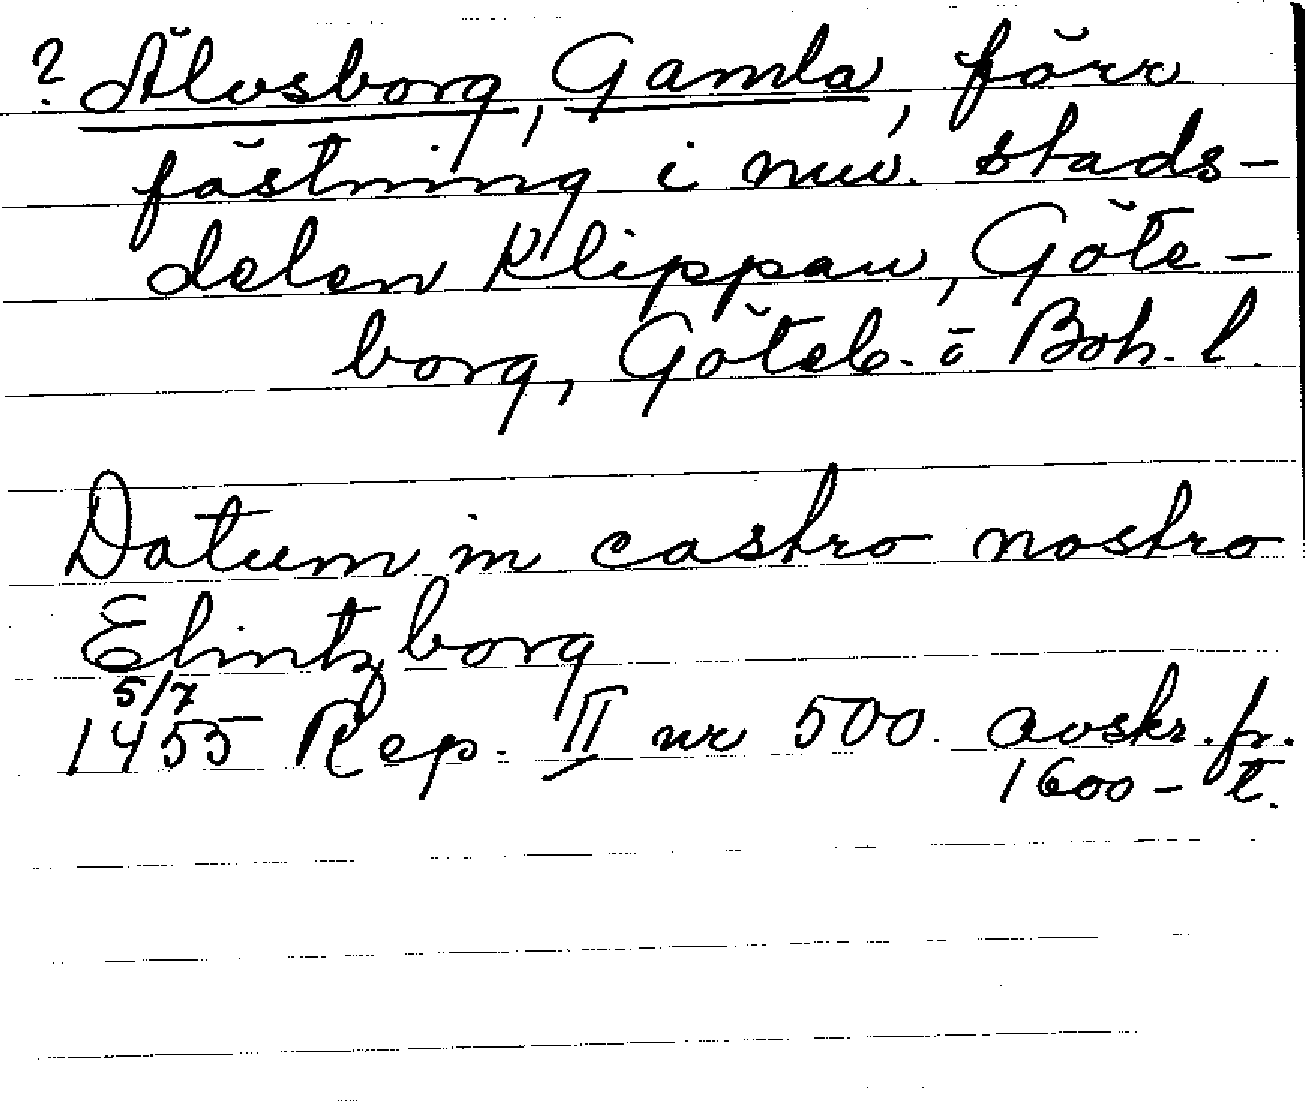 ? Älvsborg, Gamla, förr
fästning i nuv. stads-
delen Klippan, Göte-
borg, Göteb. o Boh. l.
Datum in castro nostro
Elintzborg
5/7
1455 Rep. II nr 500. avskr. fr.
1600-t.